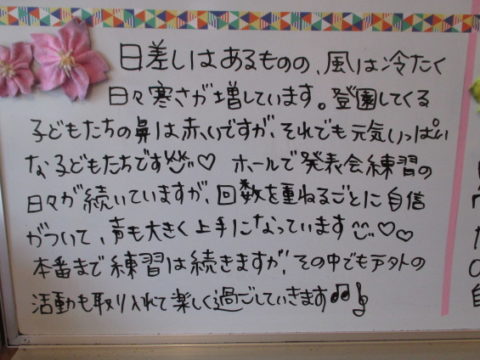 日差しはあるものの、風は冷たく
日々寒さが増しています。登園してくる
子どもたちの鼻は赤いですが、それでも元気いっぱい
な子どもたちです♡ ホールで発表会練習の
日々が続いていますが、回数を重ねるごとに自信
がついて、声も大きく上手になっています♡♡
本番まで練習は続きますが、その中でも戸外の
活動も取り入れて楽しく過ごしていきます♫